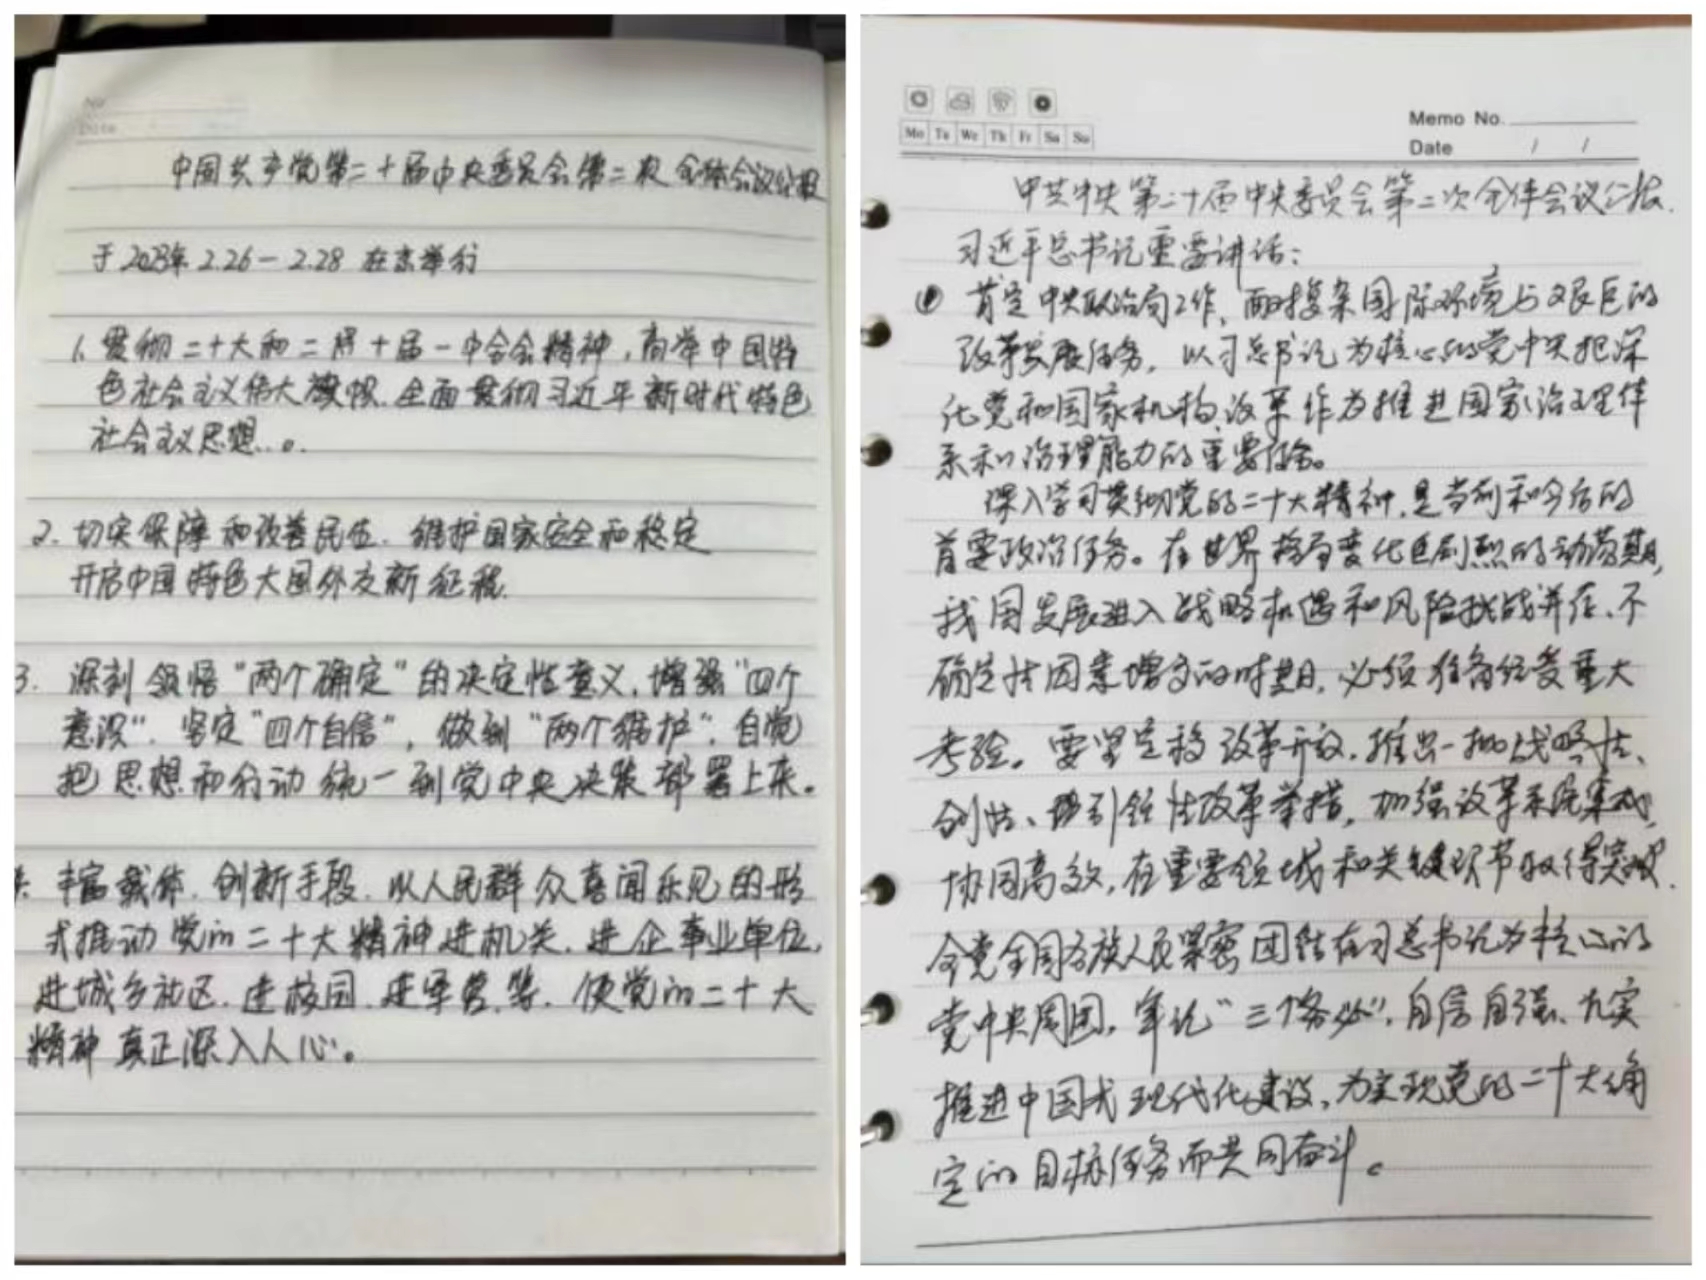 No
Date
中国共产党第二十届中央委员会第二次全体会议公报
于2023年2.26－2.28在京举行
1、贯彻二十大和二十届一中全会精神，高举中国特
色社会主义伟大旗帜，全面贯彻习近平新时代特色
社会主义思想...。
2. 切实保障和改善民生，维护国家安全和稳定
开启中国特色大国外交新征程.
3. 深刻领悟“两个确定”的决定性意义，增强“四个
意识”、坚定“四个自信”，做到“两个维护”，自觉
把思想和行动统一到党中央决策部署上来。
丰富载体、创新手段、以人民群众喜闻乐见的形
式推动党的二十大精神进机关、进企事业单位，
进城乡社区、进校园、进军营等，使党的二十大
精神真正深入人心。
Mo Tu We Th Fr Sa Su
Memo No.
Date / /
中共中央第二十届中央委员会第二次全体会议公报.
习近平总书记重要讲话：
① 肯定中央政治局工作，面对复杂国际环境与艰巨的
改革发展任务，以习总书记为核心的党中央把深
化党和国家机构改革作为推进国家治理体
系和治理能力的重要任务。
深入学习贯彻党的二十大精神，是当前和今后的
首要政治任务。在世界格局变化剧烈的动荡期，
我国发展进入战略机遇和风险挑战并存、不
确定性因素增多的时期，必须准备经受重大
考验。要坚定移改革开放，推出一批战略性、
创性、引领性改革举措，加强改革系统集成，
协同高效，在重要领域和关键环节取得突破.
全党全国各族人民紧密团结在习总书记为核心的
党中央周围，牢记“三个务必”，自信自强、
推进中国式现代化建设，为实现党的二十大确
定的目标任务而共同奋斗。